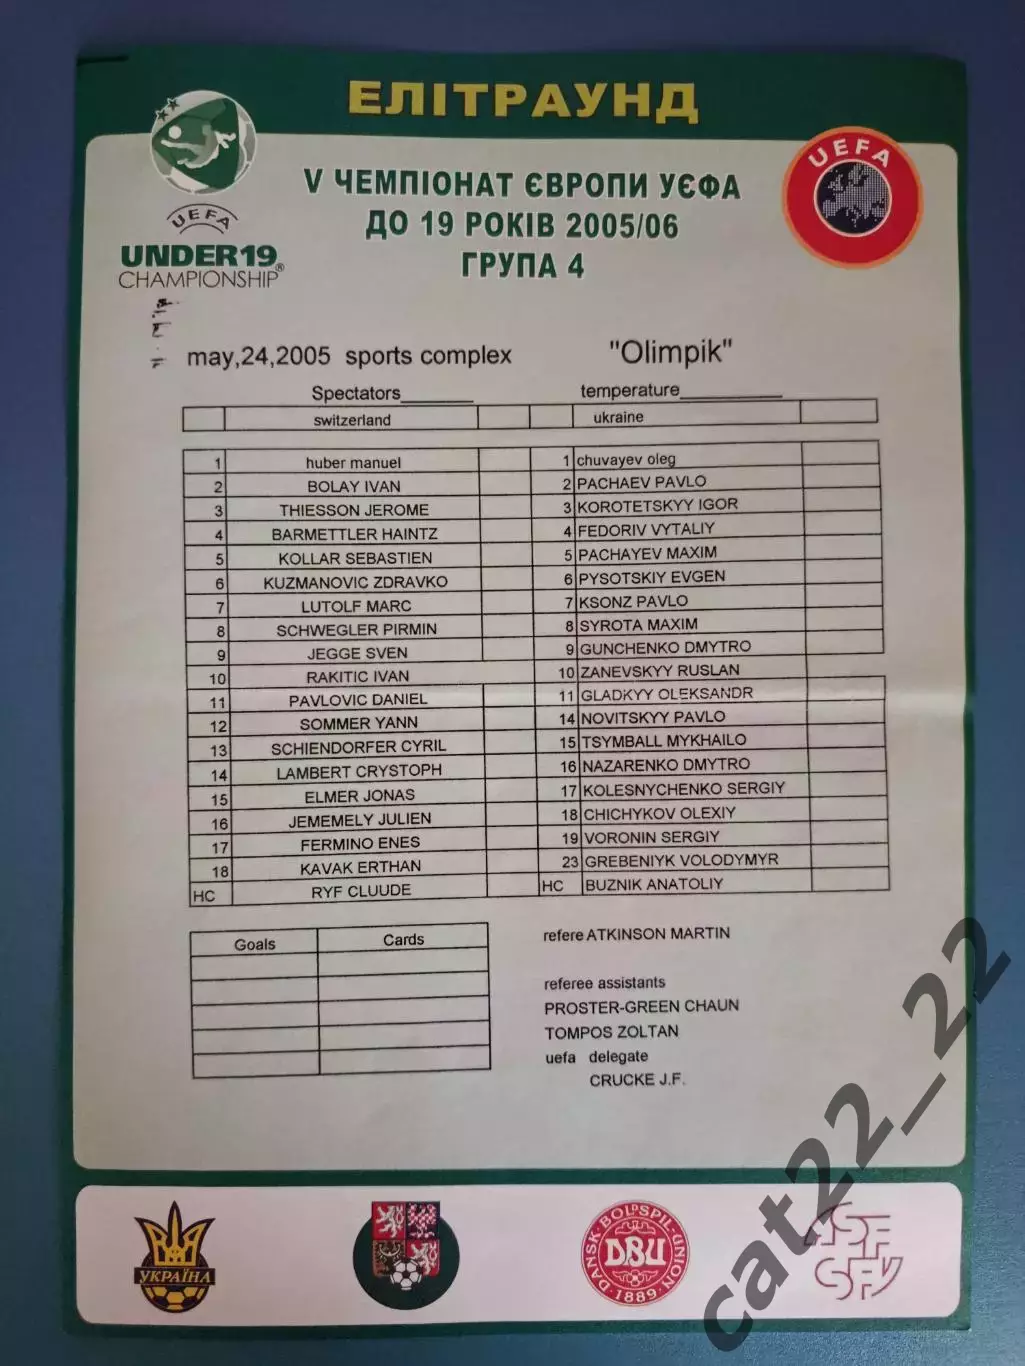 ЕЛІТРАУНД
V ЧЕМПІОНАТ ЄВРОПИ УЄФА
ДО 19 РОКІВ 2005/06
ГРУПА 4
UEFA
UNDER19
CHAMPIONSHIP®
UEFA
may,24,2005 sports complex "Olimpik"
Spectators_______ temperature__________
switzerland ukraine
1 huber manuel 1 chuvayev oleg
2 BOLAY IVAN 2 PACHAEV PAVLO
3 THIESSON JEROME 3 KOROTETSKYY IGOR
4 BARMETTLER HAINTZ 4 FEDORIV VYTALIY
5 KOLLAR SEBASTIEN 5 PACHAYEV MAXIM
6 KUZMANOVIC ZDRAVKO 6 PYSOTSKIY EVGEN
7 LUTOLF MARC 7 KSONZ PAVLO
8 SCHWEGLER PIRMIN 8 SYROTA MAXIM
9 JEGGE SVEN 9 GUNCHENKO DMYTRO
10 RAKITIC IVAN 10 ZANEVSKYY RUSLAN
11 PAVLOVIC DANIEL 11 GLADKYY OLEKSANDR
12 SOMMER YANN 14 NOVITSKYY PAVLO
13 SCHIENDORFER CYRIL 15 TSYMBALL MYKHAILO
14 LAMBERT CRYSTOPH 16 NAZARENKO DMYTRO
15 ELMER JONAS 17 KOLESNYCHENKO SERGIY
16 JEMEMELY JULIEN 18 CHICHYKOV OLEXIY
17 FERMINO ENES 19 VORONIN SERGIY
18 KAVAK ERTHAN 23 GREBENIYK VOLODYMYR
HC RYF CLUUDE HC BUZNIK ANATOLIY
Goals Cards
refere ATKINSON MARTIN
referee assistants
PROSTER-GREEN CHAUN
TOMPOS ZOLTAN
uefa delegate
CRUCKE J.F.
УКРАЇНА
DANSK BOLDSPIL UNION
DBU
1889
ASF
SFV
cat22_22